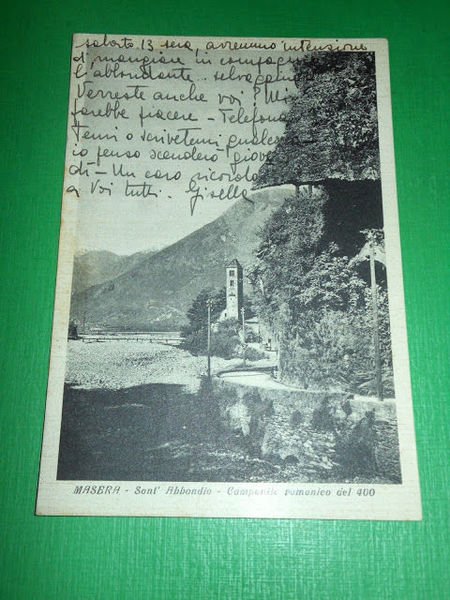 sabato 13 sera, avremmo intenzione
di mangiare in compagnia
l'abbondante selvaggina
Verreste anche voi? Mi
farebbe piacere - Telefona
temi o scrivetemi qualcosa
io penso scenderò giove
dì - Un caro ricordo
a Voi tutti. Gisella
MASERA - Sant' Abbondio - Campanile romanico del 400